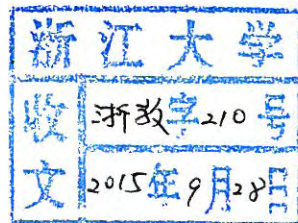 浙江大学
收文
浙教字210号
2015年9月28日